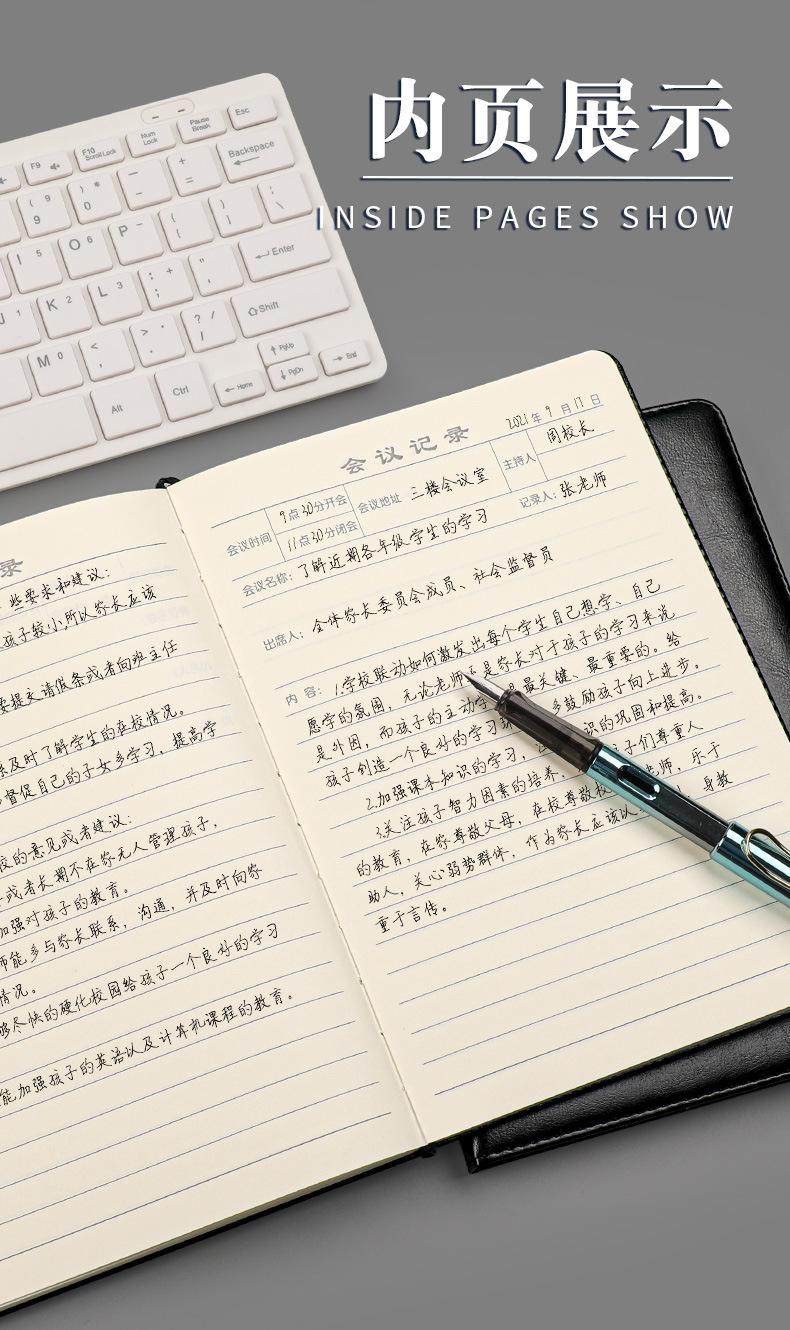 内页展示
INSIDE PAGES SHOW
Esc
Pause Break
Num Lock
F10 Scroll Lock
F9
Backspace
+ =
_ -
) * 0
( 9 9
| \
} ]
{ [
P -
O 6
I 5
Enter
" '
: ; +
L 3
K 2
J 1
Shift
? / /
> .
< ,
M 0
PgUp
End
PgDn
Home
Ctrl
Alt
会议记录
2021年9月17日
会议时间 9点30分开会 11点30分闭会 会议地址 三楼会议室 主持人 周校长
会议名称：了解近期各年级学生的学习 记录人：张老师
出席人：全体家长委员会成员、社会监督员
内容：1.学校联动如何激发出每个学生自己想学、自己
愿学的氛围，无论老师 是家长对于孩子的学习来说
是外因，而孩子的主动学 最关键、最重要的。给
孩子创造一个良好的学习 多鼓励孩子向上进步。
2.加强课本知识的学习， 识的巩固和提高。
3.关注孩子智力因素的培养， 孩子们尊重人
的教育，在家尊敬父母，在校尊敬 老师，乐于
助人，关心弱势群体，作为家长应该以 身教
重于言传。
录
些要求和建议：
孩子较小，所以家长应该
要提交请假条或者向班主任
及时了解学生的在校情况。
督促自己的子女多学习，提高学
校的意见或者建议：
或者长期不在家无人管理孩子，
加强对孩子的教育。
师能多与家长联系，沟通，并及时向家
情况。
够尽快的硬化校园给孩子一个良好的学习
能加强孩子的英语以及计算机课程的教育。